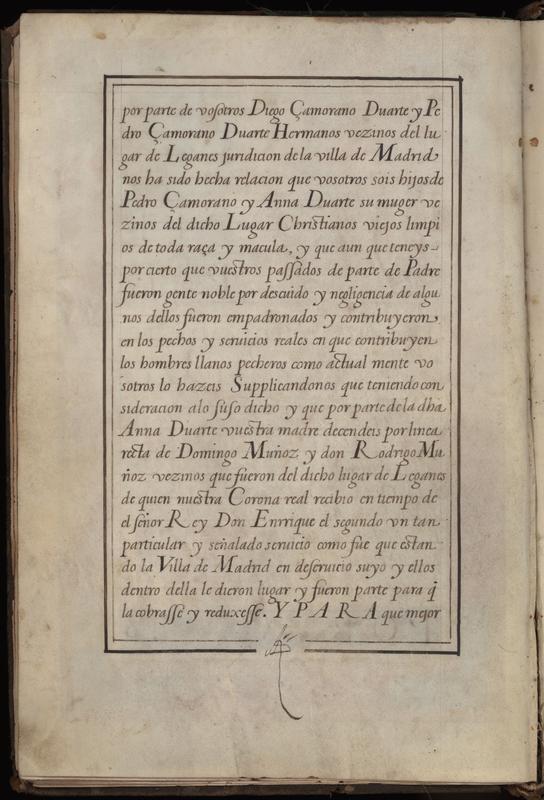 por parte de vosotros Diego Çamorano Duarte y Pe
dro Çamorano Duarte Hermanos vezinos del lu
gar de Leganes juridicion de la villa de Madrid
nos ha sido hecha relacion que vosotros sois hijos de
Pedro Çamorano y Anna Duarte su muger ve
zinos del dicho Lugar Christianos viejos limpi
os de toda raça y macula, y que aun que teneys
por cierto que vuestros passados de parte de Padre
fueron gente noble por descuido y negligencia de algu
nos dellos fueron empadronados y contribuyeron
en los pechos y seruicios reales en que contribuyen
los hombres llanos pecheros como actual mente vo
sotros lo hazeis Supplicandonos que teniendo con
sideracion alo suso dicho y que por parte de la dha
Anna Duarte vuestra madre decendeis por linea
recta de Domingo Muñoz y don Rodrigo Mu
ñoz vezinos que fueron del dicho lugar de Leganes
de quien nuestra Corona real recibio en tiempo de
el señor Rey Don Enrrique el segundo vn tan
particular y señalado seruicio como fue que estan
do la Villa de Madrid en deseruicio suyo y ellos
dentro della le dieron lugar y fueron parte para q̃
la cobrasse y reduxesse. Y PARA que mejor